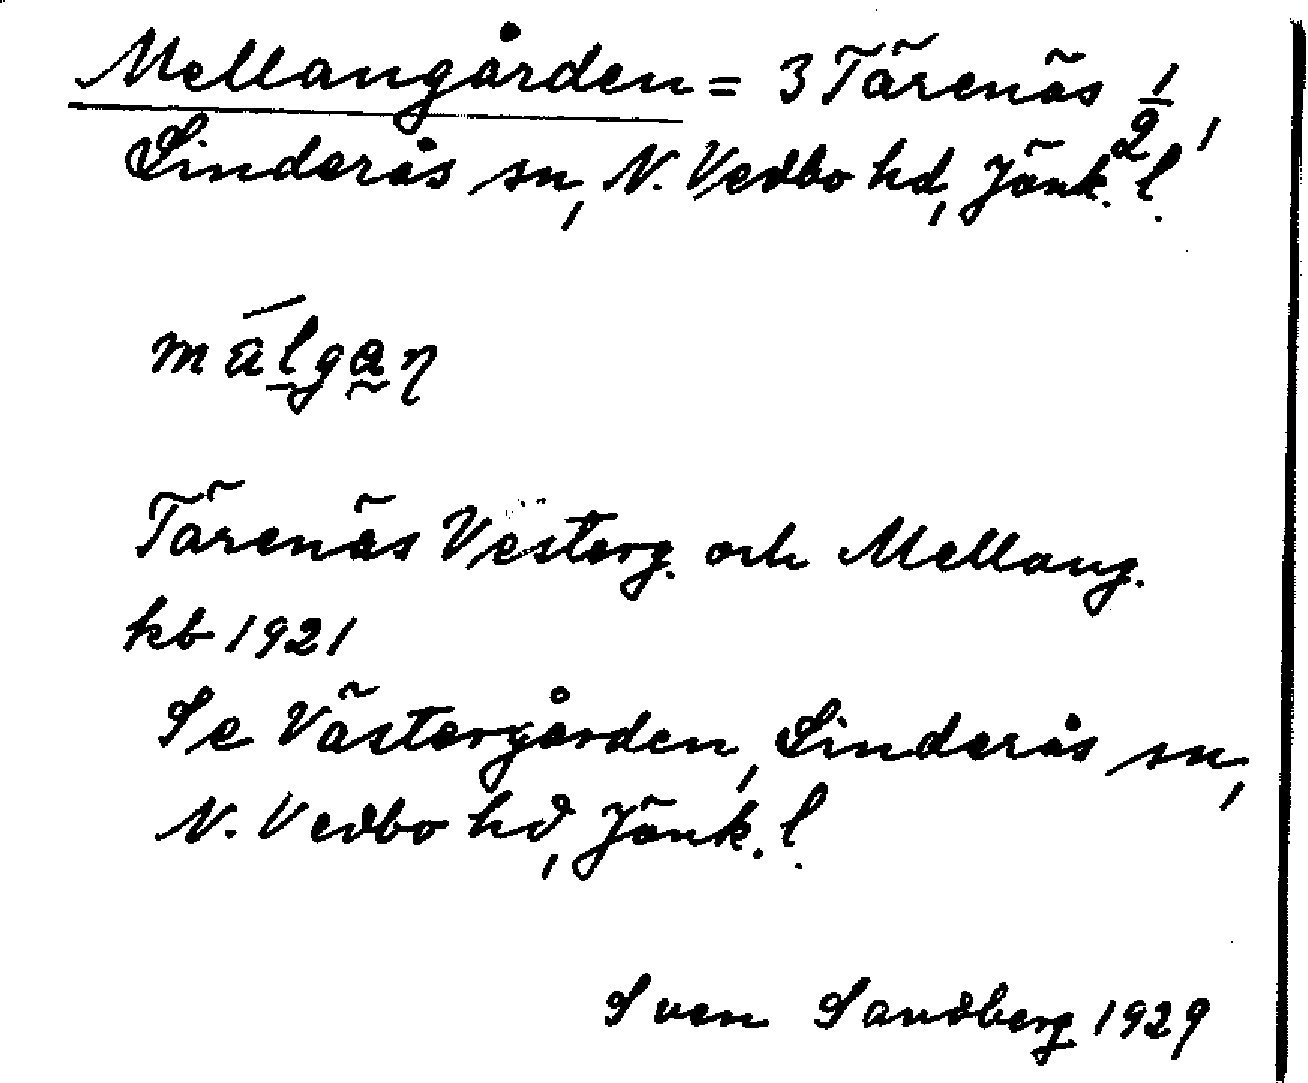 Mellangården = 3 Tärenäs 1/2,
Linderås sn, N. Vedbo hd, Jönk. l.
målgan
Tärenäs Västerg. och Mellang.
kb 1921
Se Västergården, Linderås sn,
N. Vedbo hd, Jönk. l.
Sven Sandberg 1929